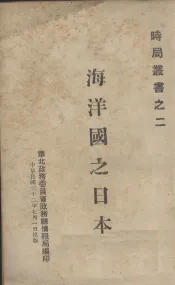 時局叢書之二
海洋國之日本
華北政務委員會政務廳情報局編印
中華民國三十二年七月一日出版